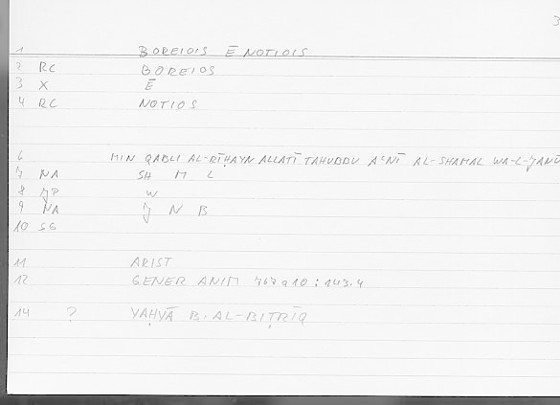 3
1 BOREIOIS Ē NOTIOIS
2 RC BOREIOS
3 X Ē
4 RC NOTIOS
6 MIN QABLI AL-RĪḤAYN ALLATĪ TAHUBBU AʿNĪ AL-SHAMAL WA-L-JANŪ
7 NA SH M L
8 JP W
9 NA J N B
10 SG
11 ARIST
12 GENER ANIM 767a10 : 143.4
14 ? YAḤYĀ B. AL-BIṬRĪQ